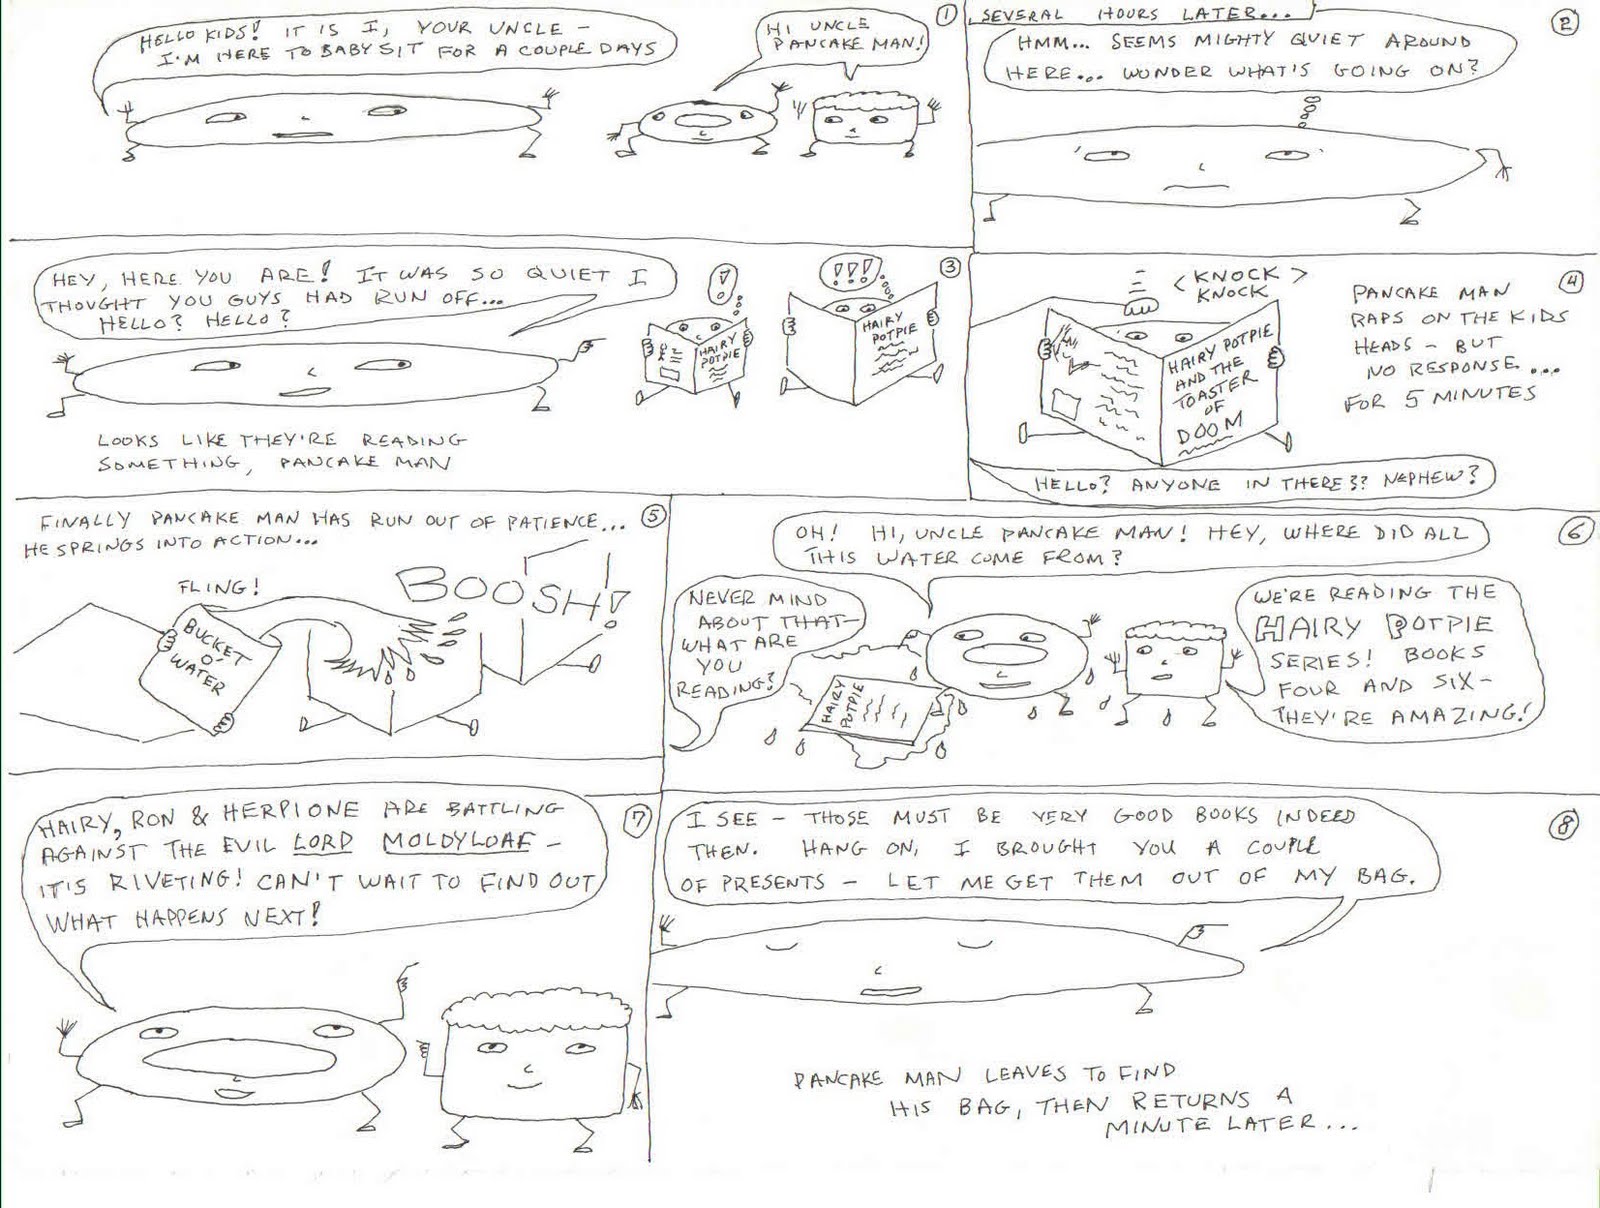 HELLO KIDS! IT IS I, YOUR UNCLE –
I'M HERE TO BABY SIT FOR A COUPLE DAYS
HI UNCLE
PANCAKE MAN!
1
SEVERAL HOURS LATER...
2
HMM... SEEMS MIGHTY QUIET AROUND
HERE... WONDER WHAT'S GOING ON?
3
HEY, HERE YOU ARE! IT WAS SO QUIET I
THOUGHT YOU GUYS HAD RUN OFF...
HELLO? HELLO?
!
!!!
HAIRY
POTPIE
HAIRY
POTPIE
LOOKS LIKE THEY'RE READING
SOMETHING, PANCAKE MAN
4
<KNOCK>
KNOCK
HAIRY POTPIE
AND THE
TOASTER
OF
DOOM
PANCAKE MAN
RAPS ON THE KIDS
HEADS – BUT
NO RESPONSE....
FOR 5 MINUTES
HELLO? ANYONE IN THERE?? NEPHEW?
5
FINALLY PANCAKE MAN HAS RUN OUT OF PATIENCE...
HE SPRINGS INTO ACTION...
FLING!
BUCKET
O'
WATER
BOOSH!
6
OH! HI, UNCLE PANCAKE MAN! HEY, WHERE DID ALL
THIS WATER COME FROM?
NEVER MIND
ABOUT THAT–
WHAT ARE
YOU
READING?
HAIRY
POTPIE
WE'RE READING THE
HAIRY POTPIE
SERIES! BOOKS
FOUR AND SIX–
THEY'RE AMAZING!
7
HAIRY, RON & HERPIONE ARE BATTLING
AGAINST THE EVIL LORD MOLDYLOAF –
IT'S RIVETING! CAN'T WAIT TO FIND OUT
WHAT HAPPENS NEXT!
8
I SEE – THOSE MUST BE VERY GOOD BOOKS INDEED
THEN. HANG ON, I BROUGHT YOU A COUPLE
OF PRESENTS – LET ME GET THEM OUT OF MY BAG.
PANCAKE MAN LEAVES TO FIND
HIS BAG, THEN RETURNS A
MINUTE LATER...